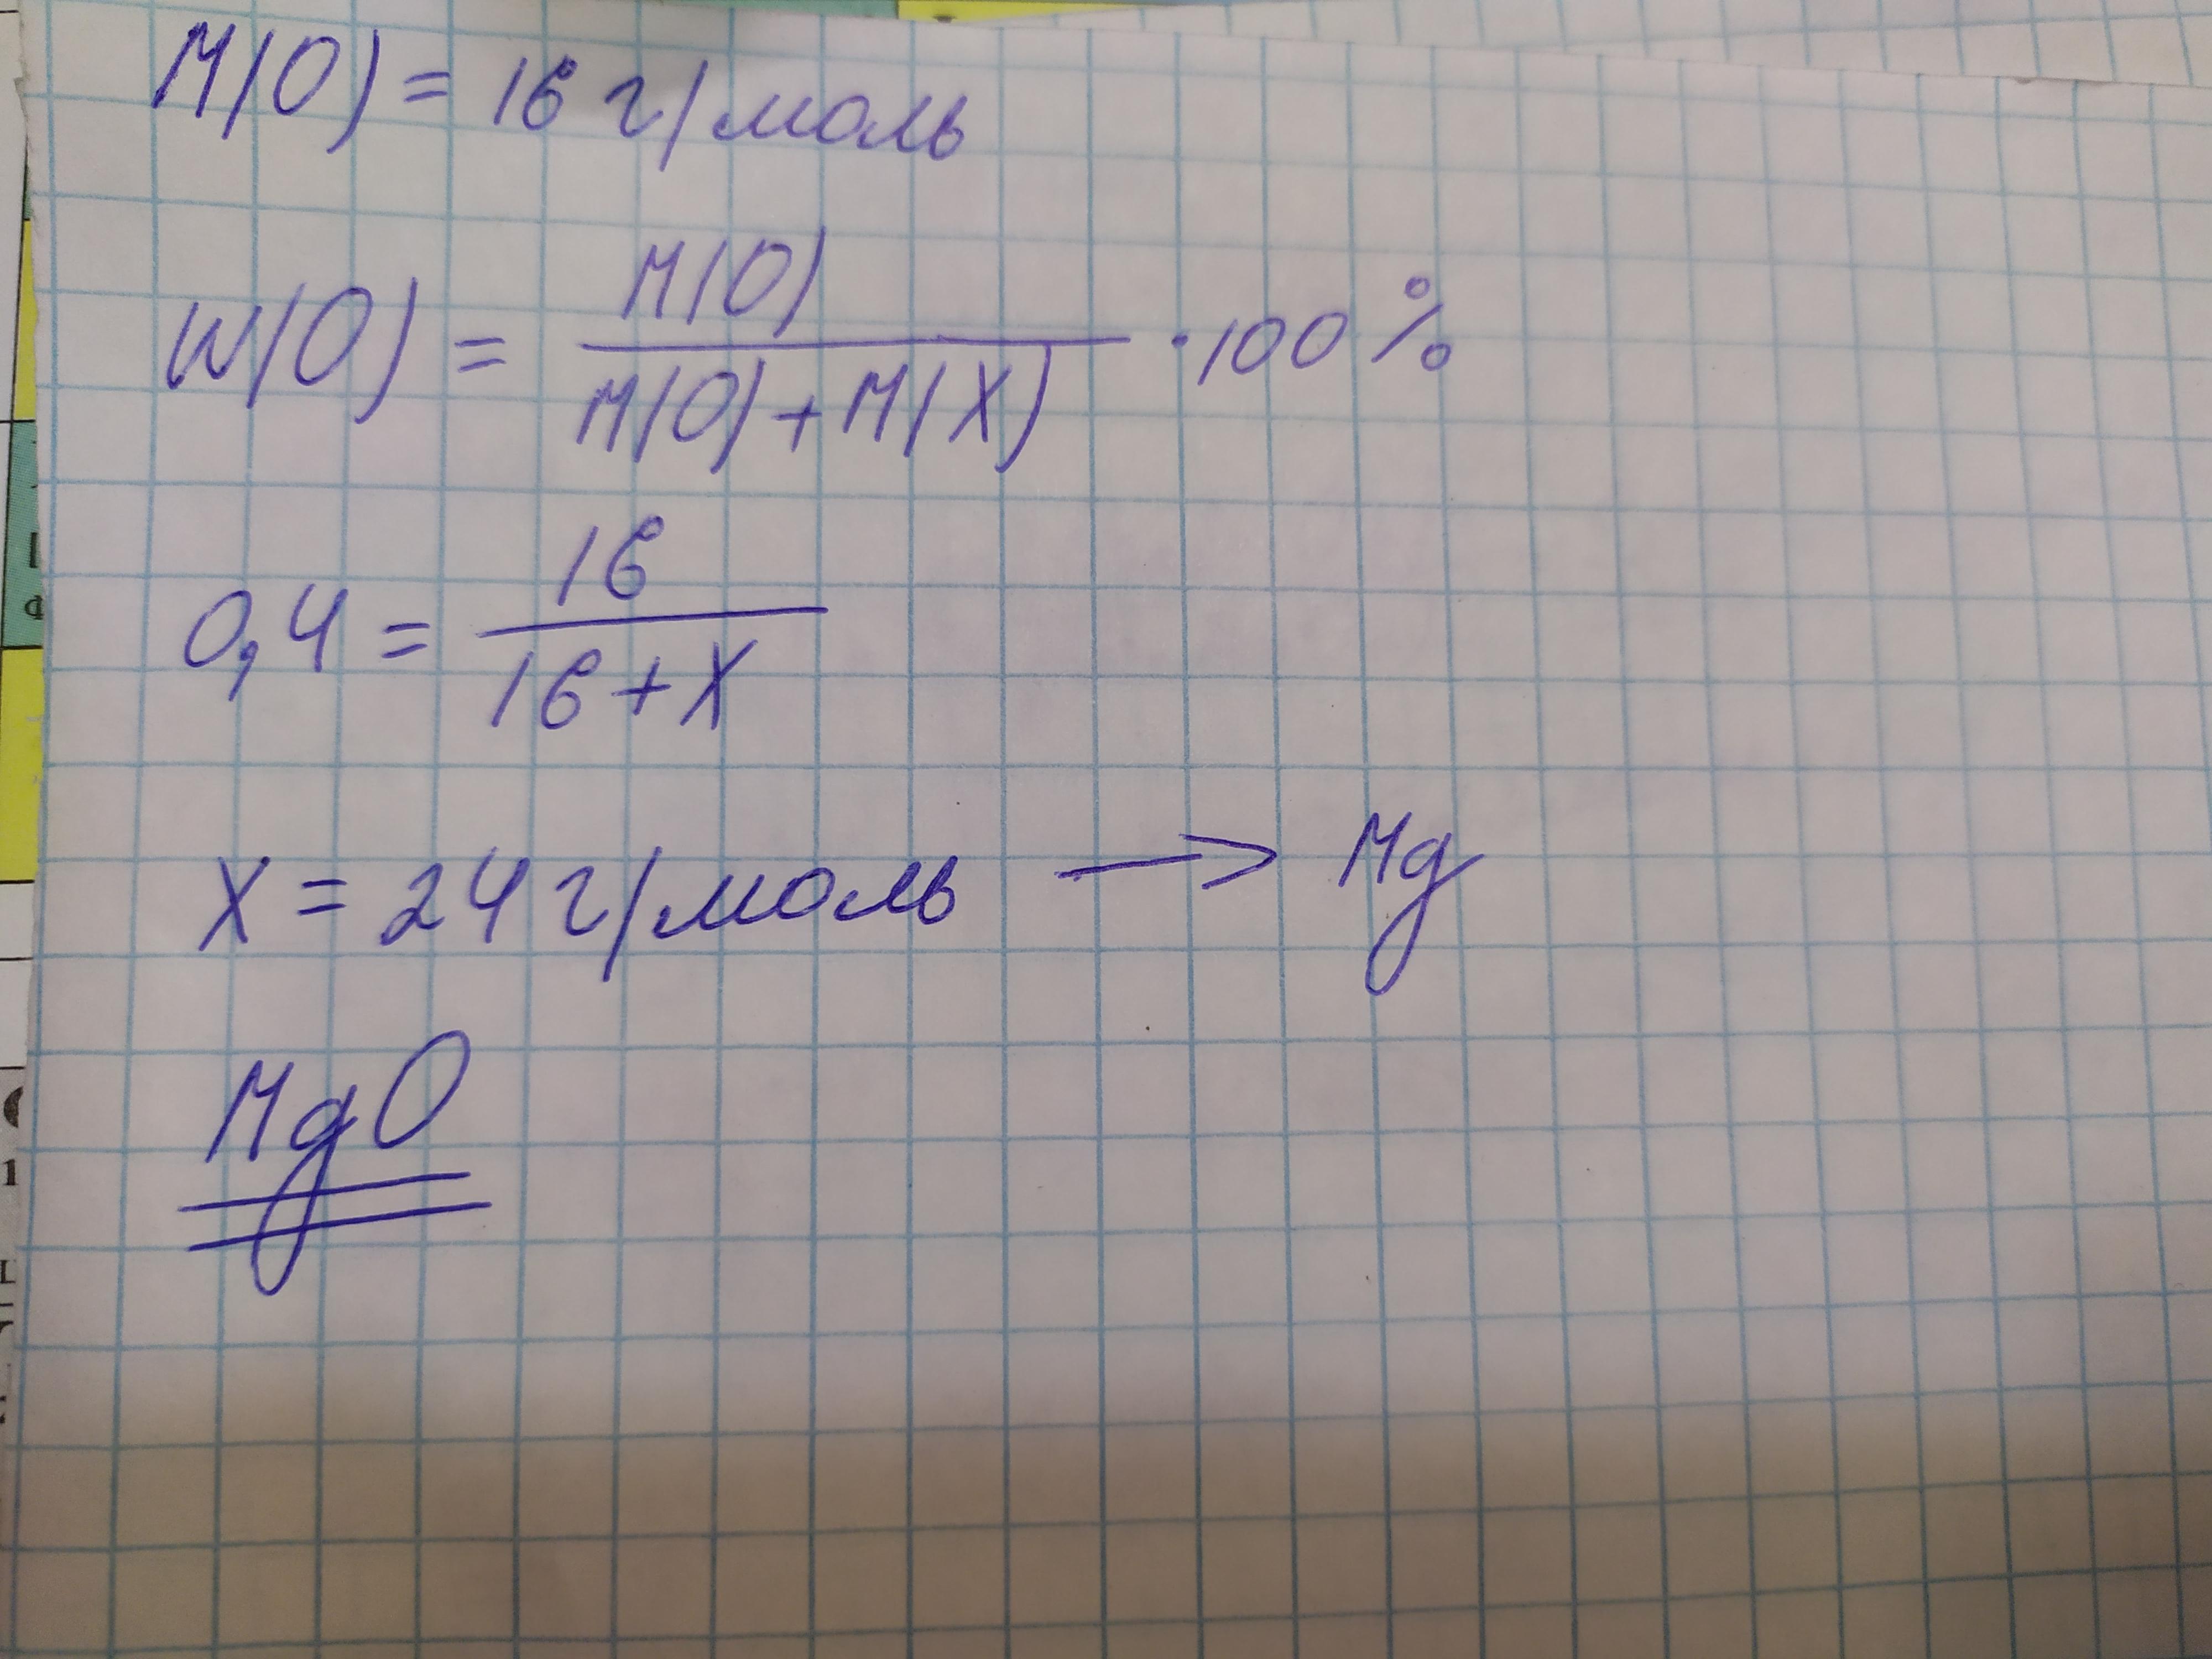 M(O) = 16 г/моль
W(O) = M(O) / M(O) + M(X) · 100 %
0,4 = 16 / 16 + X
X = 24 г/моль → Mg
MgO